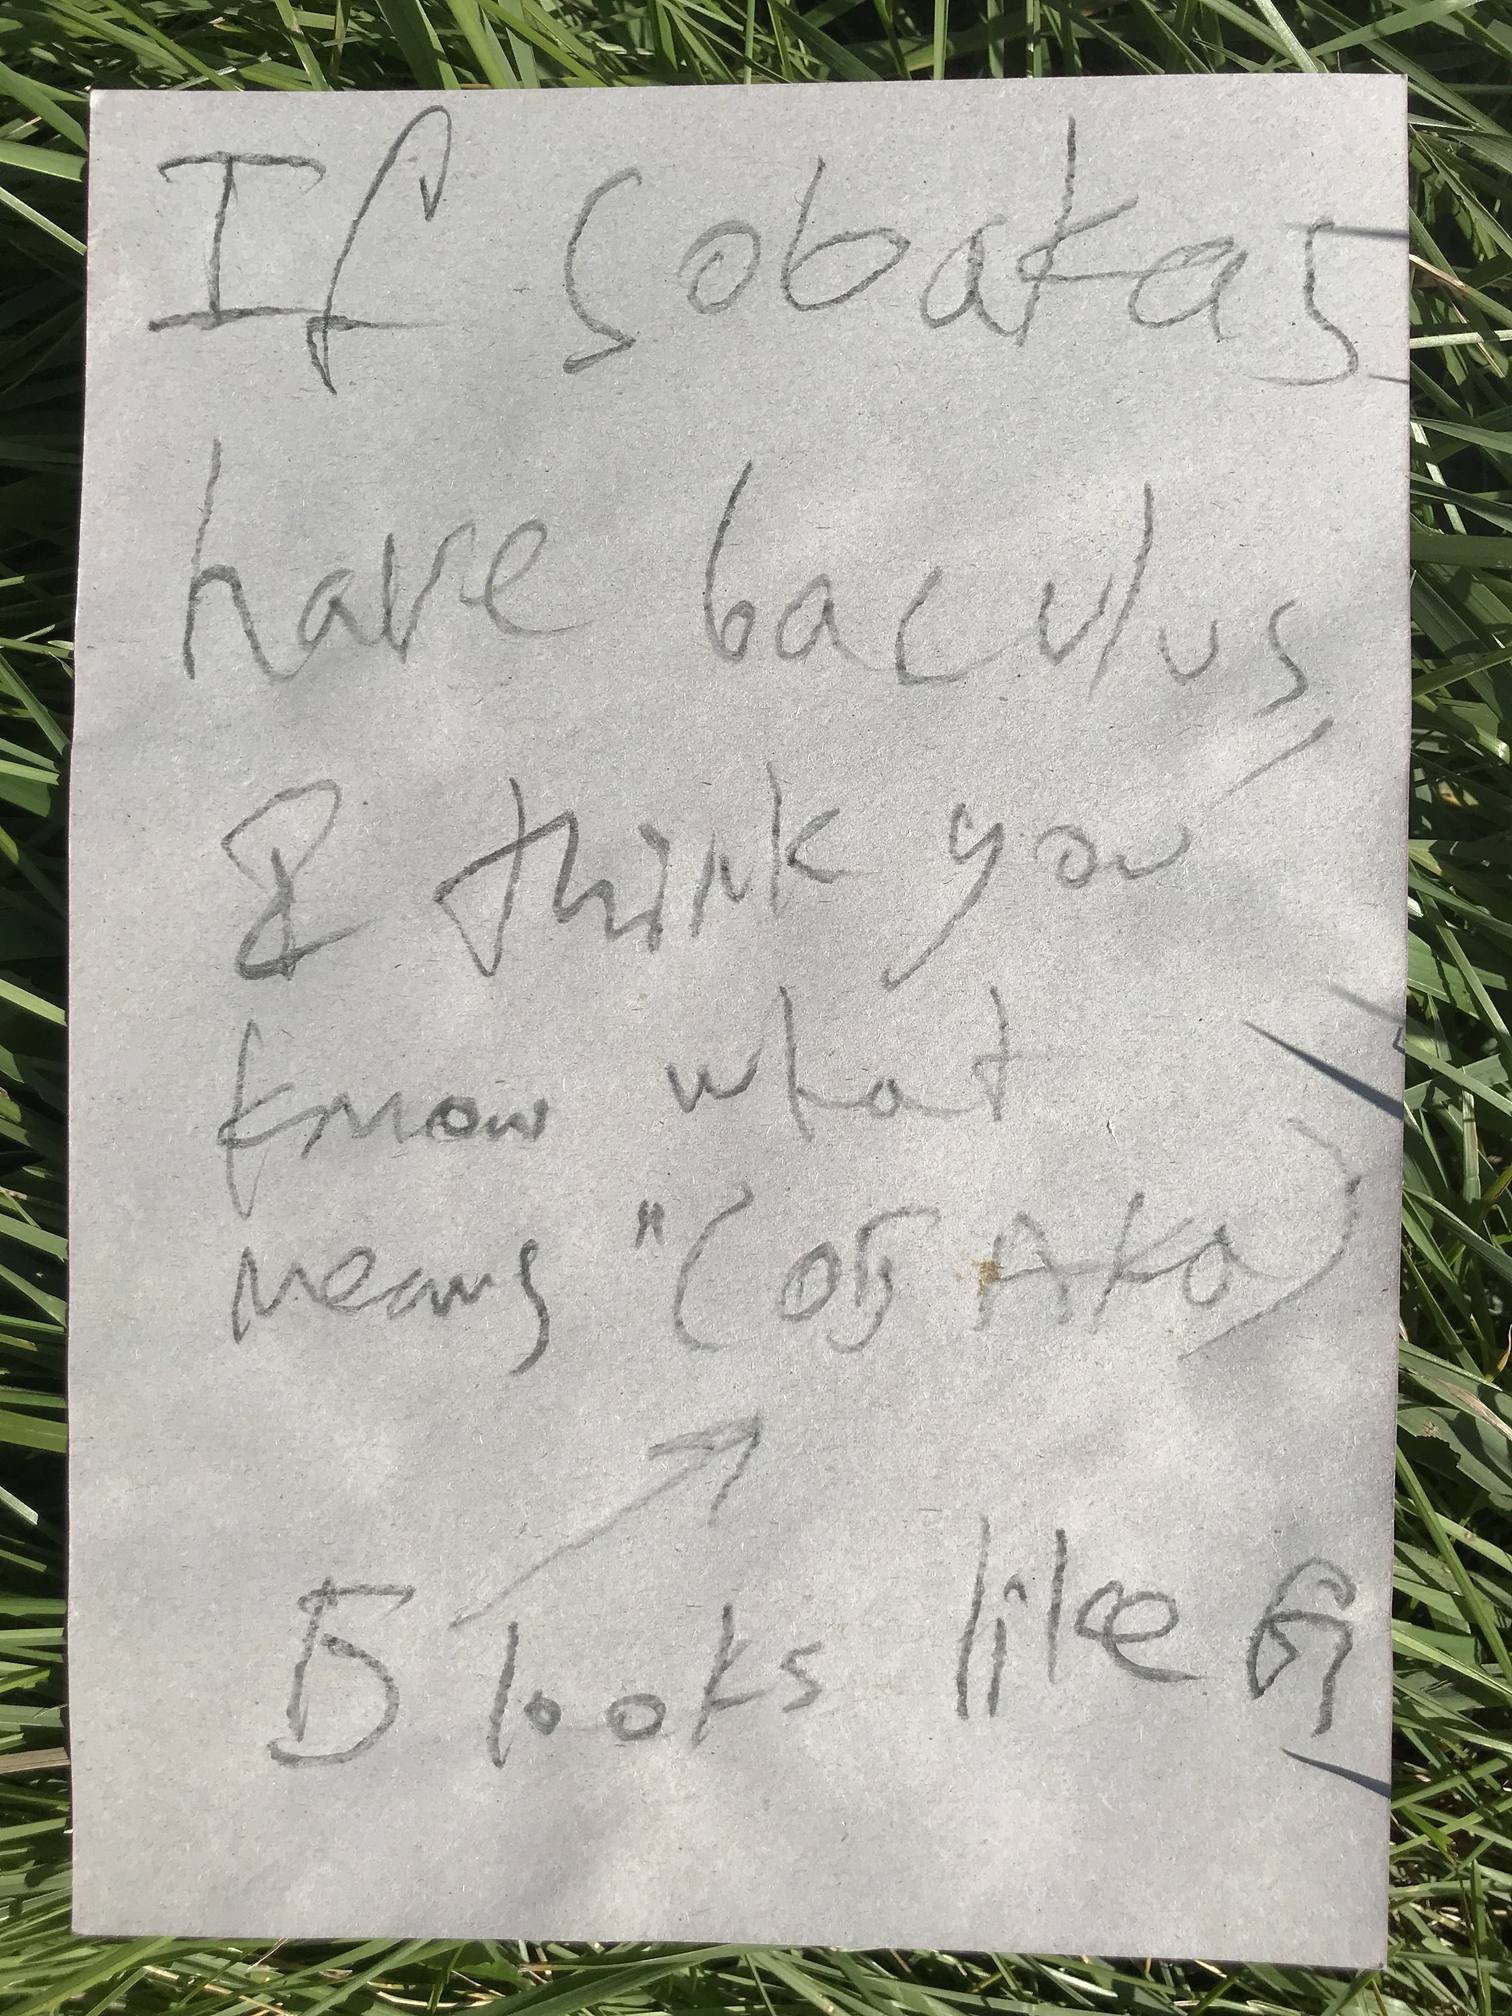 If sobakas
have baculus
I think you
know what
means "(обAка)
Б looks like б